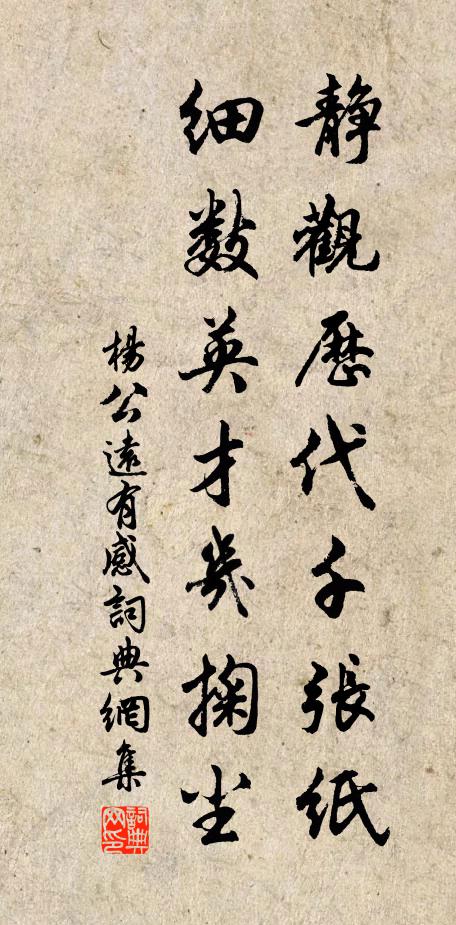 靜觀歷代千張紙
細數英才幾掬塵
楊公遠有感詞典網集
詞典網印